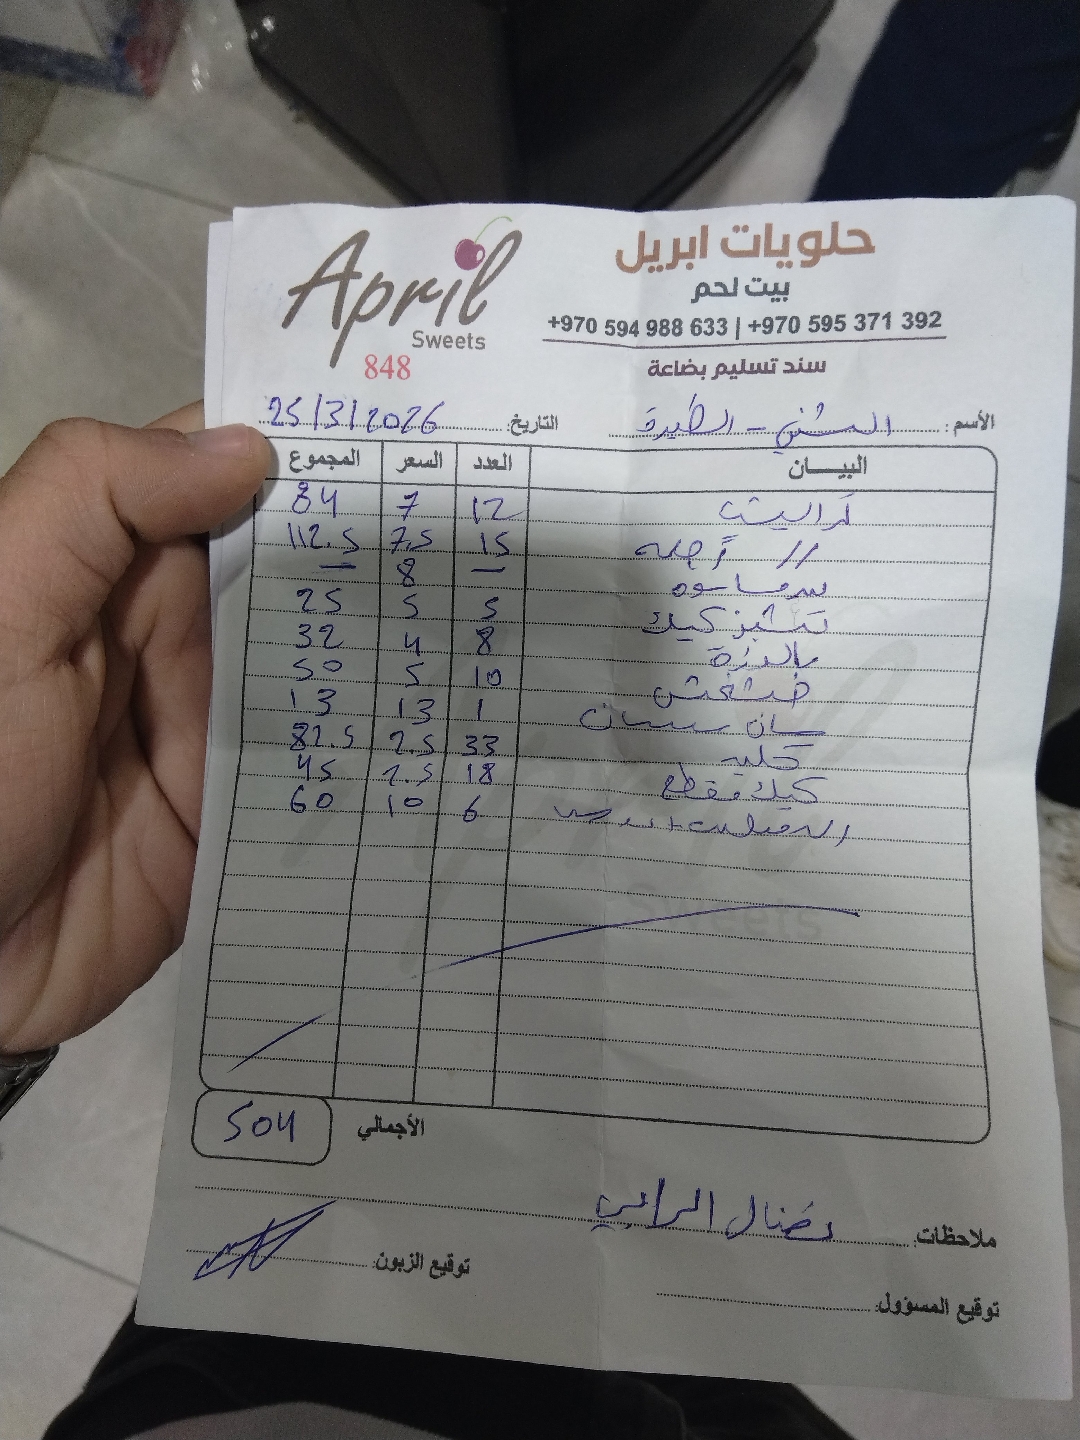 April
Sweets
848
حلويات ابريل
بيت لحم
+970 594 988 633 | +970 595 371 392
سند تسليم بضاعة
الأسم: الطيرة
التاريخ: 25/3/2026
البيـــان العدد السعر المجموع
12 7 84
// 15 7.5 112.5
— 8 —
تشيز كيك 5 5 25
8 4 32
خشخش 10 5 50
سان سبستيان 1 13 13
33 2.5 82.5
كيك مقطع 18 2.5 45
6 10 60
الأجمالي 504
ملاحظات: نضال
توقيع الزبون:
توقيع المسؤول: